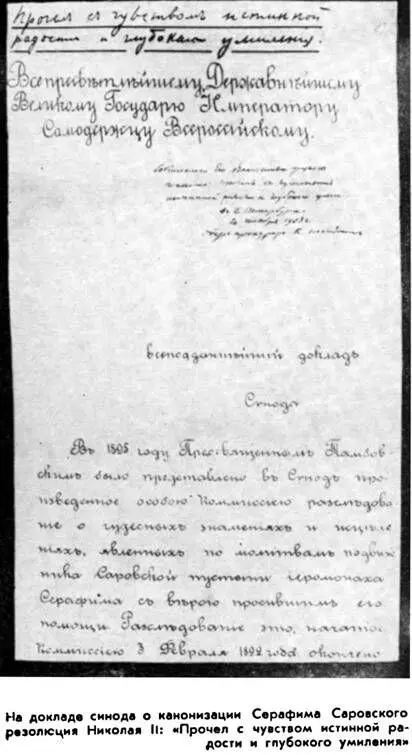 Прочел съ чувствомъ истинной
радости и глубокаго умиленія.
Всепресвѣтлѣйшему, Державнѣйшему
Великому Государю Императору
Самодержцу Всероссійскому.
всеподданнѣйшій докладъ
Сѵнода
Въ 1895 году Преосвященнымъ Тамбов-
скимъ было представлено въ Сѵнодъ про-
изведенное особою Коммиссіею разслѣдова-
ніе о чудесныхъ знаменіяхъ и исцѣле-
ніяхъ, явленныхъ по молитвамъ подвиж-
ника Саровской пустыни іеромонаха
Серафима съ вѣрою просившимъ его
помощи. Разслѣдованіе это, начатое
Коммиссіею 3 Февраля 1892 года окончено
На докладе синода о канонизации Серафима Саровского
резолюция Николая II: «Прочел с чувством истинной ра-
дости и глубокого умиления»